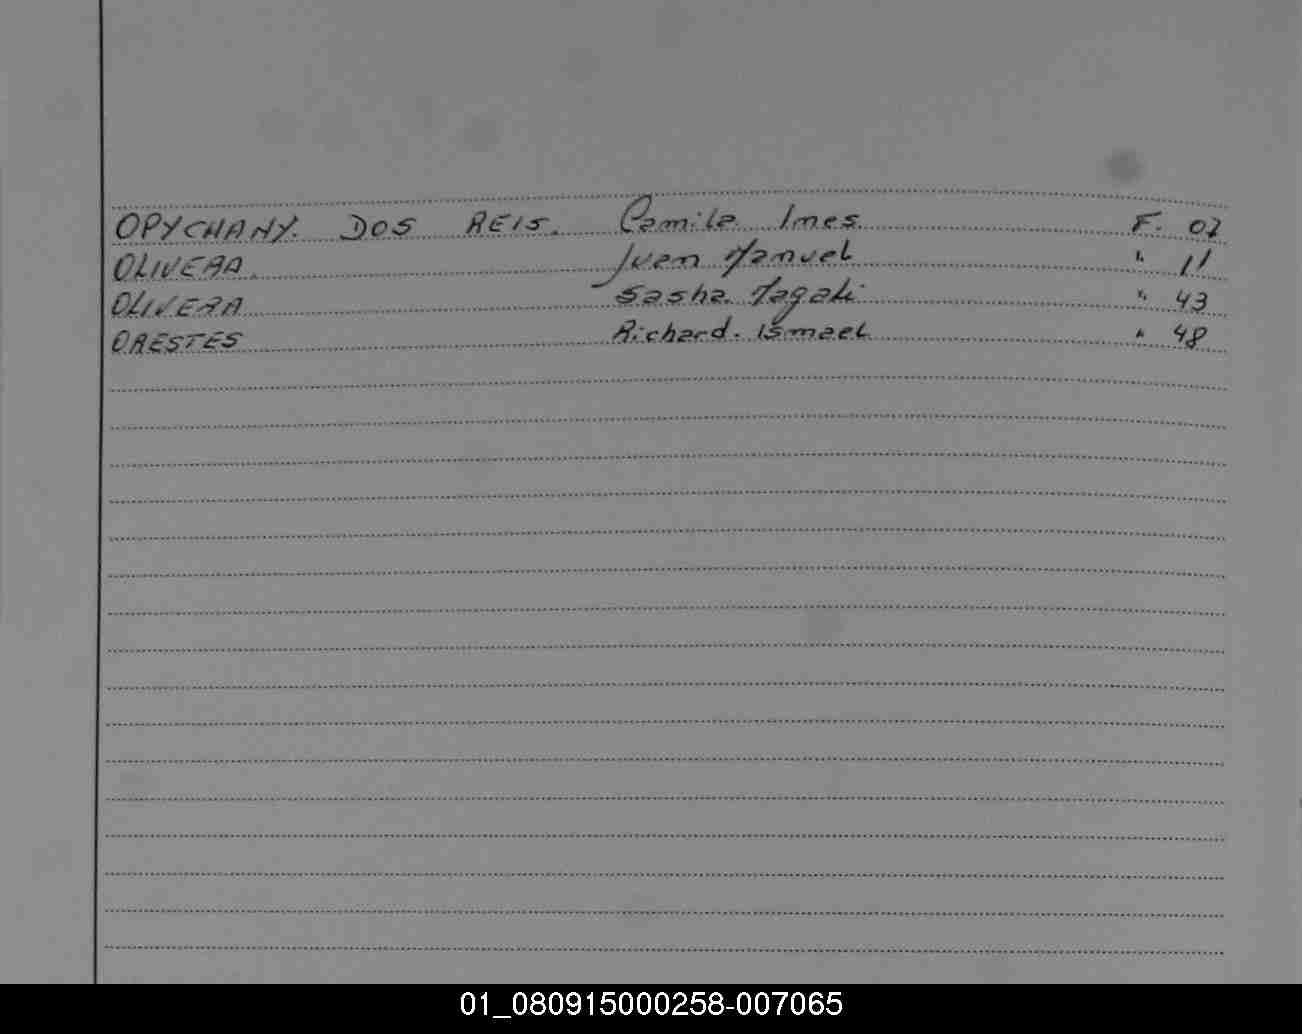 OPYCHANY. DOS REIS. Camila Ines. F. 02
OLIVERA. Juan Manuel " 11
OLIVERA Sasha Magali " 43
ORESTES Richard. Ismael " 48
01_080915000258-007065